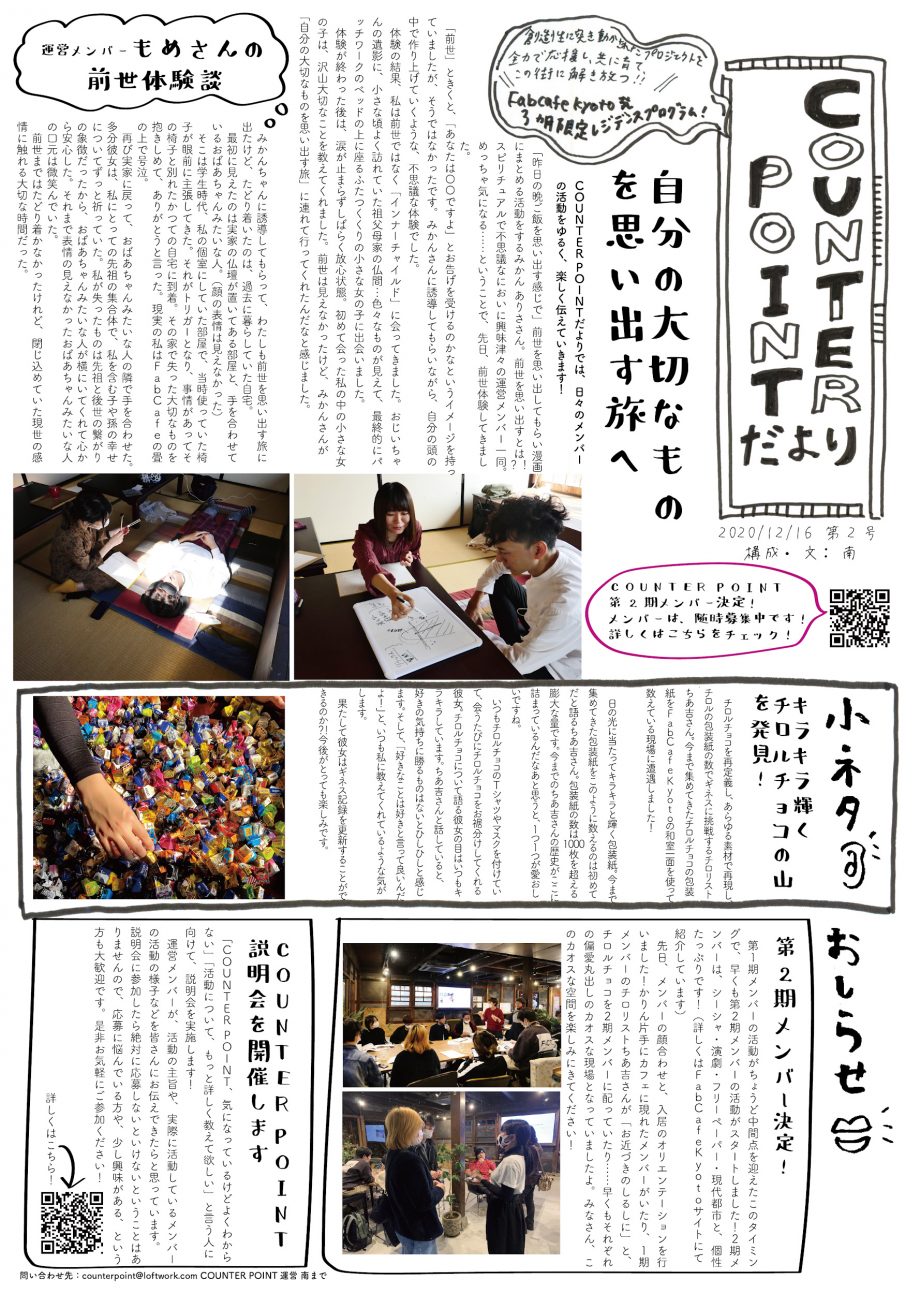 COUNTER
POINT
だより
創造性に突き動かされたプロジェクトを
全力で応援し、共に育て
この街に解き放つ!!
Fabcafe Kyoto発
3ヵ月限定レジデンスプログラム!
2020/12/16 第2号
構成・文: 南
COUNTER POINT
第2期メンバー決定!
メンバーは、随時募集中です!
詳しくはこちらをチェック!
自分の大切なもの
を思い出す旅へ
COUNTER POINTだよりでは、日々のメンバー
の活動をゆるく、楽しく伝えていきます!
「昨日の晩ご飯を思い出す感じで」前世を思い出してもらい漫画
にまとめる活動をするみかん ありささん。前世を思い出すとは!?
スピリチュアルで不思議なにおいに興味津々の運営メンバー一同。
めっちゃ気になる……ということで、先日、前世体験してきまし
た。
「前世」ときくと、「あなたは〇〇ですよ」とお告げを受けるのかなというイメージを持っ
ていましたが、そうではなかったです。みかんさんに誘導してもらいながら、自分の頭の
中で作り上げていくような、不思議な体験でした。
体験の結果、私は前世ではなく「インナーチャイルド」に会ってきました。おじいちゃ
んの遺影に、小さな頃よく訪れていた祖父母家の仏間…色々なものが見えて、最終的にパ
ッチワークのベッドの上に座るふたつくくりの小さな女の子に出会いました。
体験が終わった後は、涙が止まらずしばらく放心状態。初めて会った私の中の小さな女
の子は、沢山大切なことを教えてくれました。前世は見えなかったけど、みかんさんが
「自分の大切なものを思い出す旅」に連れて行ってくれたんだなと感じました。
運営メンバー もめさんの
前世体験談
みかんちゃんに誘導してもらって、わたしも前世を思い出す旅に
出たけど、たどり着いたのは、過去に暮らしていた自宅。
最初に見えたのは実家の仏壇が置いてある部屋と、手を合わせて
いるおばあちゃんみたいな人。(顔の表情は見えなかった)
そこは学生時代、私の個室にしていた部屋で、当時使っていた椅
子が眼前に主張してきた。それがトリガーとなり、事情があってそ
の椅子と別れたかつての自宅に到着。その家で失った大切なものを
抱きしめて、ありがとうと言った。現実の私はFabCafeの畳
の上で号泣。
再び実家に戻って、おばあちゃんみたいな人の隣で手を合わせた。
多分彼女は、私にとっての先祖の集合体で、私を含む子や孫の幸せ
についてずっと祈っていた。私が失ったものは先祖と後世の繋がり
の象徴だったから、おばあちゃんみたいな人が横にいてくれて心か
ら安心した。それまで表情の見えなかったおばあちゃんみたいな人
の口元は微笑んでいた。
前世まではたどり着かなかったけれど、閉じ込めていた現世の感
情に触れる大切な時間だった。
小ネタ
キラキラ輝く
チロルチョコの山
を発見!
チロルチョコを再定義し、あらゆる素材で再現し、
チロルの包装紙の数でギネスに挑戦するチロリスト
ちあ吉さん。今まで集めてきたチロルチョコの包装
紙をFabCafeKyotoの和室一面を使って
数えている現場に遭遇しました!
日の光に当たってキラキラと輝く包装紙。今まで
集めてきた包装紙をこのように数えるのは初めて
だと語るちあ吉さん。包装紙の数は1000枚を超える
膨大な量です。今までのちあ吉さんの歴史がここに
詰まっているんだなあと思うと、1つ1つが愛おし
いですね。
いつもチロルチョコのTシャツやマスクを付けてい
て、会うたびにチロルチョコをお裾分けしてくれる
彼女。チロルチョコについて語る彼女の目はいつもキ
ラキラしています。ちあ吉さんと話していると、
好きの気持ちに勝るものはないとひしひしと感じ
ます。そして、「好きなことは好きと言って良いんだ
よ!」と、いつも私に教えてくれているような気が
します。
果たして彼女はギネス記録を更新することがで
きるのか?!今後がとっても楽しみです。
おしらせ
第2期メンバー決定!
第1期メンバーの活動がちょうど中間点を迎えたこのタイミン
グで、早くも第2期メンバーの活動がスタートしました!2期メ
ンバーは、シーシャ・演劇・フリーペーパー・現代都市と、個性
たっぷりです!(詳しくはFabCafeKyotoサイトにて
紹介しています)
先日、メンバーの顔合わせと、入居のオリエンテーションを行
いました!かりん片手にカフェに現れたメンバーがいたり、1期
メンバーのチロリストちあ吉さんが「お近づきのしるしに」と、
チロルチョコを2期メンバーに配っていたり……早くもそれぞれ
の偏愛丸出しのカオスな現場となっていましたよ。みなさん、こ
のカオスな空間を楽しみにきてください!
COUNTER POINT
説明会を開催します
「COUNTER POINT、気になっているけどよくわから
ない」「活動について、もっと詳しく教えて欲しい」と言う人に
向けて、説明会を実施します!
運営メンバーが、活動の主旨や、実際に活動しているメンバー
の活動の様子などを皆さんにお伝えできたらと思っています。
説明会に参加したら絶対に応募しないといけないということはあ
りませんので、応募に悩んでいる方や、少し興味がある、という
方も大歓迎です。是非お気軽にご参加ください!
詳しくはこちら!
問い合わせ先:counterpoint@loftwork.com COUNTER POINT 運営 南まで